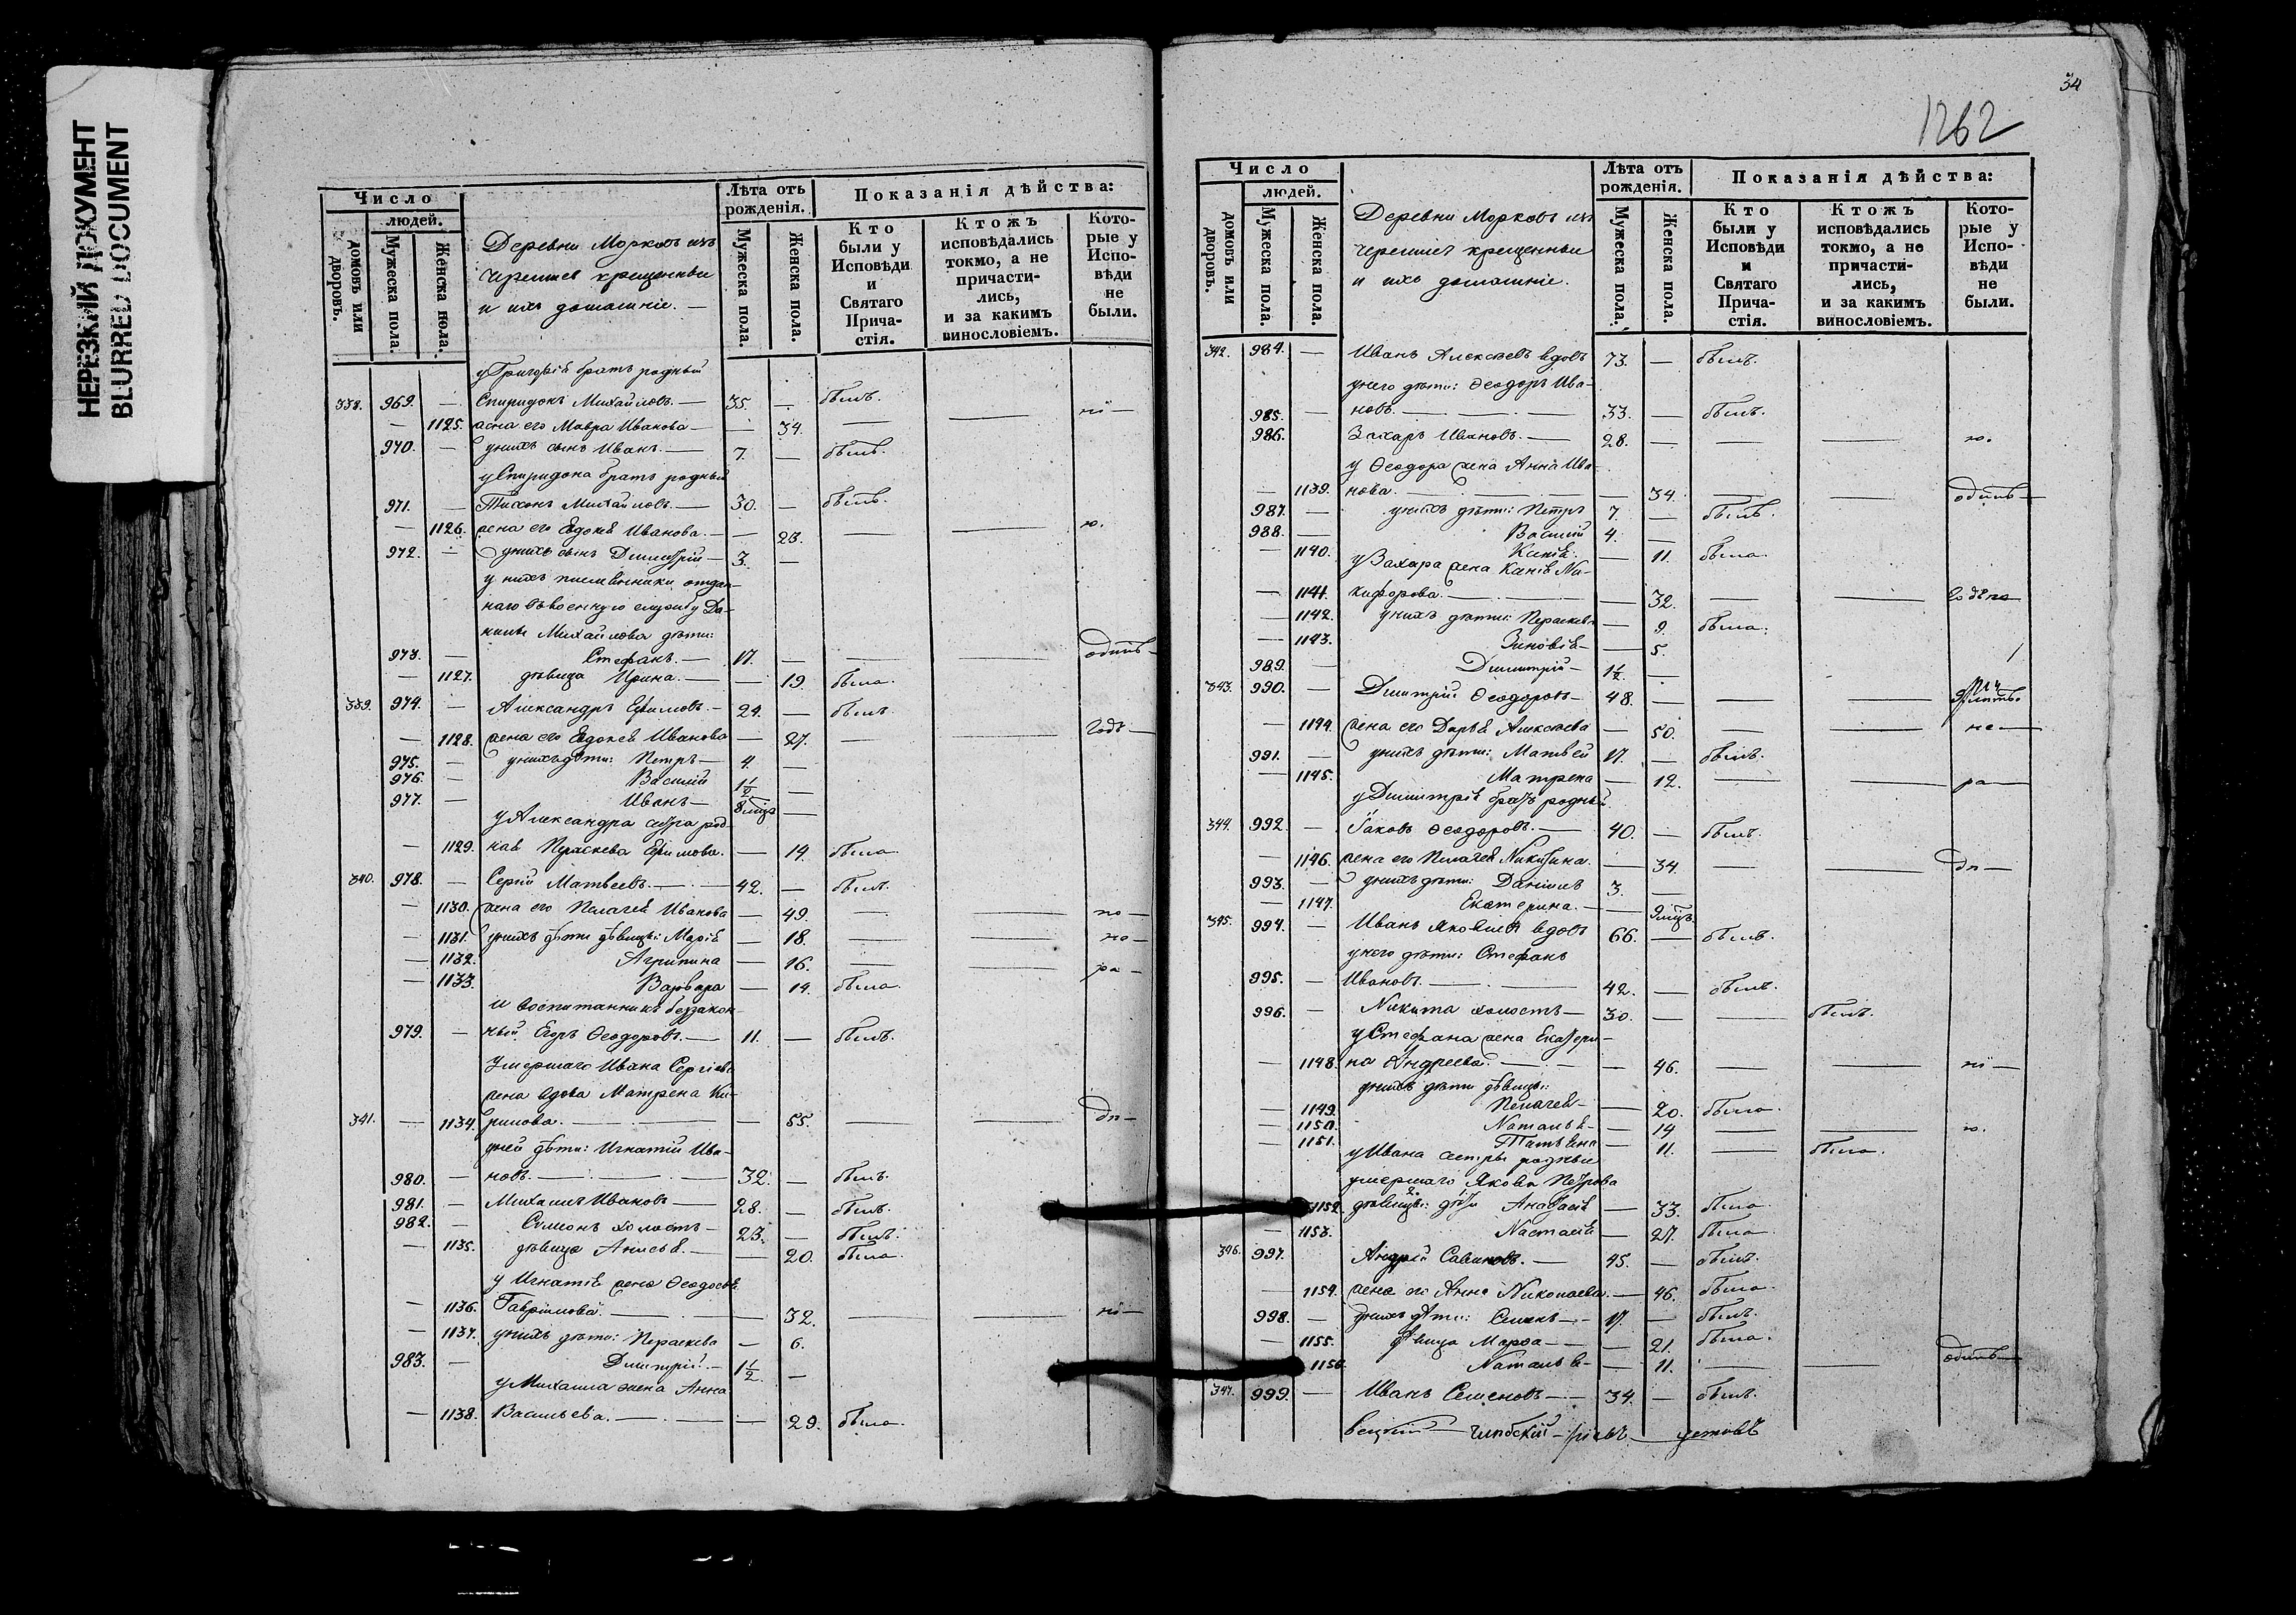 НЕРЕЗКИЙ ДОКУМЕНТ
BLURRED DOCUMENT
Число
людей.
домовъ или дворовъ.
Мужеска пола.
Женска пола.
Деревни Морковъ изъ
черемисъ крещенныи
и ихъ домашніе. —
Лѣта отъ рожденія.
Мужеска пола.
Женска пола.
Показанія дѣйства:
Кто были у Исповѣди и Святаго Прича-стія.
Ктожъ исповѣдались токмо, а не причасти-лись, и за какимъ винословіемъ.
Кото-рые у Испо-вѣди не были.
у Григорія братъ родный
338. 969. — Спиридонъ Михайловъ. — 35. — былъ.
— 1125. жена его Мавра Иванова — — 34. — — ні —
970. — у нихъ сынъ Иванъ. — 7. — былъ.
у Спиридона братъ родный
971. — Тихонъ Михайловъ. — 30. — былъ.
— 1126. жена его Евдокія Иванова. — — 23. — — ю.
972. — у нихъ сынъ Димитрій — 3. —
у нихъ племянники отдан-
наго въ военную службу Да-
ниила Михайлова дѣти:
973. — Стефанъ. — 17. — — — одинъ —
— 1127. дѣвица Ирина. — — 19. была.
339. 974. — Александръ Ефимовъ. — 24. — былъ.
— 1128. жена его Евдокія Иванова — 27. — — годъ —
975. — у нихъ дѣти: Петръ — 4. —
976. — Василій 1½ —
977. — Иванъ — 8 мцъ —
у Александра сестра род-
— 1129. ная Параскева Ефимова. — 14. была.
340. 978. — Сергій Матвеевъ. — 42. — былъ.
— 1130. жена его Пелагея Иванова — 49. — — по —
— 1131. у нихъ дѣти дѣвицы: Марія — 18. — — по —
— 1132. Агрипина — 16. — — ра —
— 1133. Варвара — 14. была.
и воспитанникъ беззакон-
979. — ный Егоръ Ѳеодоровъ. — 11. — былъ.
умершаго Ивана Сергіева
жена вдова Матрена Ки-
341. — 1134. рилова. — — 55. — — дп —
у ней дѣти: Игнатій Ива-
980. — новъ. — 32. — былъ.
981. — Михаилъ Ивановъ — 28. — былъ.
982. — Симеонъ холостъ — 23. — былъ.
— 1135. дѣвица Анисья. — — 20. была.
у Игнатія жена Ѳеодосья
— 1136. Гаврилова. — — 32. — — ні —
— 1137. у нихъ дѣти: Параскева — 6.
983. — Димитрій. — 1½. —
у Михаила жена Анна
— 1138. Васильева. — — 29. была.
34
1262
Число
людей.
домовъ или дворовъ.
Мужеска пола.
Женска пола.
Деревни Морковъ изъ
черемисъ крещенныи
и ихъ домашніе.
Лѣта отъ рожденія.
Мужеска пола.
Женска пола.
Показанія дѣйства:
Кто были у Исповѣди и Святаго Прича-стія.
Ктожъ исповѣдались токмо, а не причасти-лись, и за какимъ винословіемъ.
Кото-рые у Испо-вѣди не были.
342. 984. — Иванъ Алексѣевъ вдовъ 73. — былъ.
у него дѣти: Ѳеодоръ Ива-
985. — новъ. — 33. — былъ.
986. Захаръ Ивановъ. — 28. — — — ю.
у Ѳеодора жена Анна Ива-
— 1139. нова. — — 34. — — одинъ —
987. — у нихъ дѣти: Петръ 7. — былъ.
988. — Василій 4. —
— 1140. Ксенія. — — 11. была.
у Захара жена Ксенія Ни-
— 1141. кифорова. — — 32. — — годъ по
— 1142. у нихъ дѣти: Параскева — 9. была.
— 1143. Зиновія — — 5.
989. — Димитрій — 1½. —
343. 990. — Димитрій Ѳеодоровъ — 48. — — —
— 1144. жена его Дарья Алексѣева — 50. — — не —
991. — у нихъ дѣти: Матвей 17. — былъ.
— 1145. Матрена — 12. — — ра —
у Димитрія братъ родный
344. 992. — Іаковъ Ѳеодоровъ. — 40. — былъ.
— 1146. жена его Пелагея Никитина. — 34. — — дп —
993. — у нихъ дѣти: Даніилъ 3. —
— 1147. Екатерина. — — 9 мцъ.
345. 994. — Иванъ Яковлевъ вдовъ 66. — былъ.
у него дѣти: Стефанъ
995. — Ивановъ. — 42. — былъ.
996. — Никита холостъ — 30. — — былъ.
у Стефана жена Екатери-
— 1148. на Андреева. — — 46. — — ні —
у нихъ дѣти дѣвицы:
— 1149. Пелагея — — 20. была.
— 1150. Наталья — — 14 — — ю.
— 1151. Татьяна — 11. — была.
у Ивана сестры родныя
умершаго Якова Петрова
1152. дѣвицы: дѣти Анастасія — 33. была
— 1153. Настасія — 27. была.
346. 997. Андрей Савиновъ. — 45. — былъ.
— 1154. жена его Анна Николаева. — 46. была.
998. — у нихъ дѣти: Семенъ — 17. — былъ.
— 1155. дѣвица Марѳа — — 21. была.
— 1156. Наталья — — 11. — — одинъ —
347. 999. — Иванъ Семеновъ — 34. — былъ.